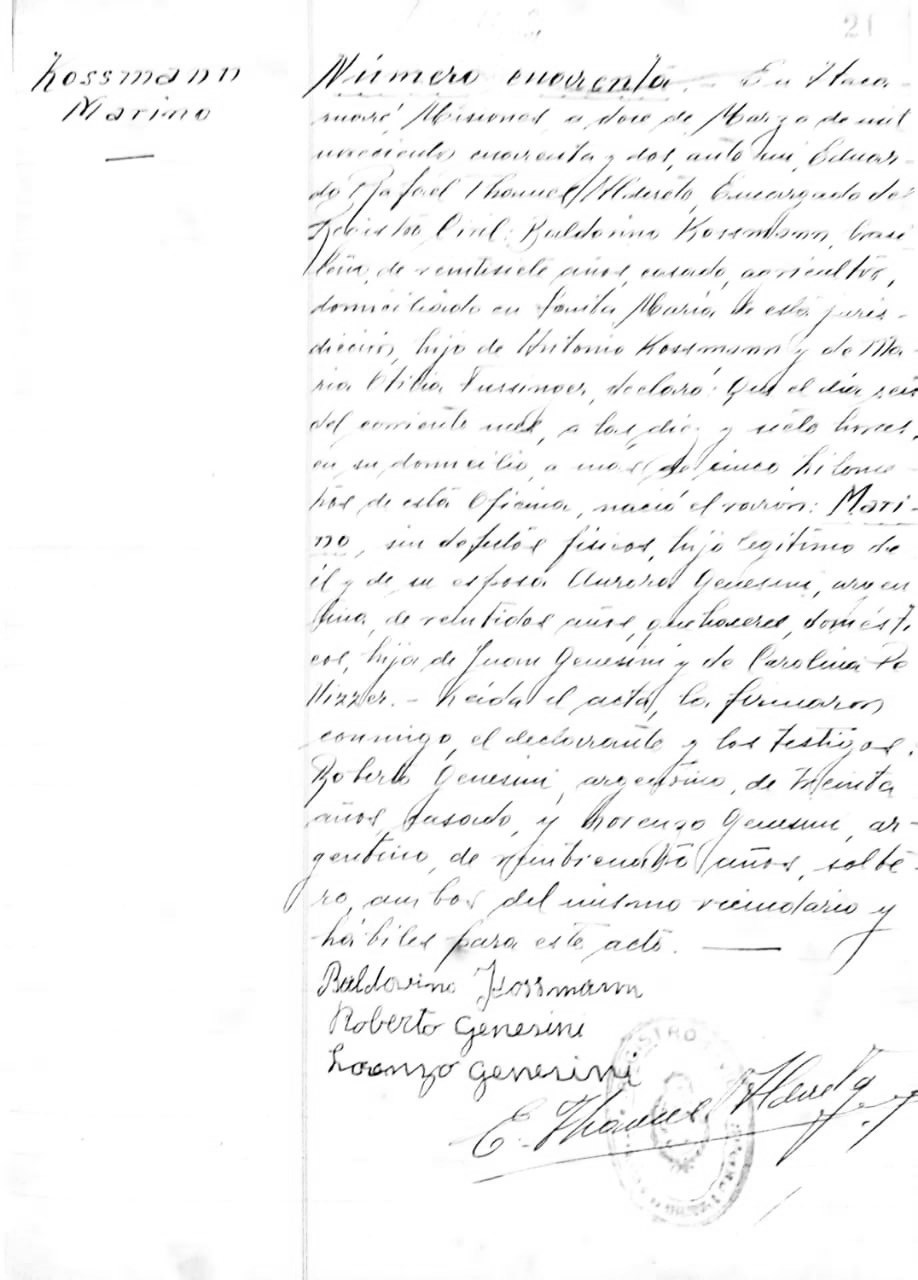 21
Kossmann
Marino
Número cuarenta.- En Itaca-
ruaré, Misiones, a doce de Marzo de mil
novecientos cuarenta y dos, ante mi, Eduar-
do Rafael Alderete, Encargado del
Registro Civil: Baldovino Kossmann, brasi-
leño, de veintisiete años, casado, agricultor,
domiciliado en Santa María de esta juris-
dicción, hijo de Antonio Kossmann y de Ma-
ria Otilia, declaró: Que el día seis
del corriente mes, a las diez y siete horas,
en su domicilio, a mas de cinco kilome-
tros de esta Oficina, nació el varón: Mari-
no, sin defectos físicos, hijo legítimo de
él y de su esposa Aurora Genesini, argen
tina, de veintidos años, quehaceres domésti
cos, hija de Juan Genesini y de Carolina
.- Leida el acta, la firmaron
conmigo, el declarante y los testigos:
Roberto Genesini, argentino, de treinta
años, casado, y Lorenzo Genesini, ar-
gentino, de veinticuatro años, solte-
ro, ambos del mismo vecindario y
hábiles para este acto.
Baldovino Kossmann
Roberto Genesini
Lorenzo Genesini
E. Alderete
REGISTRO